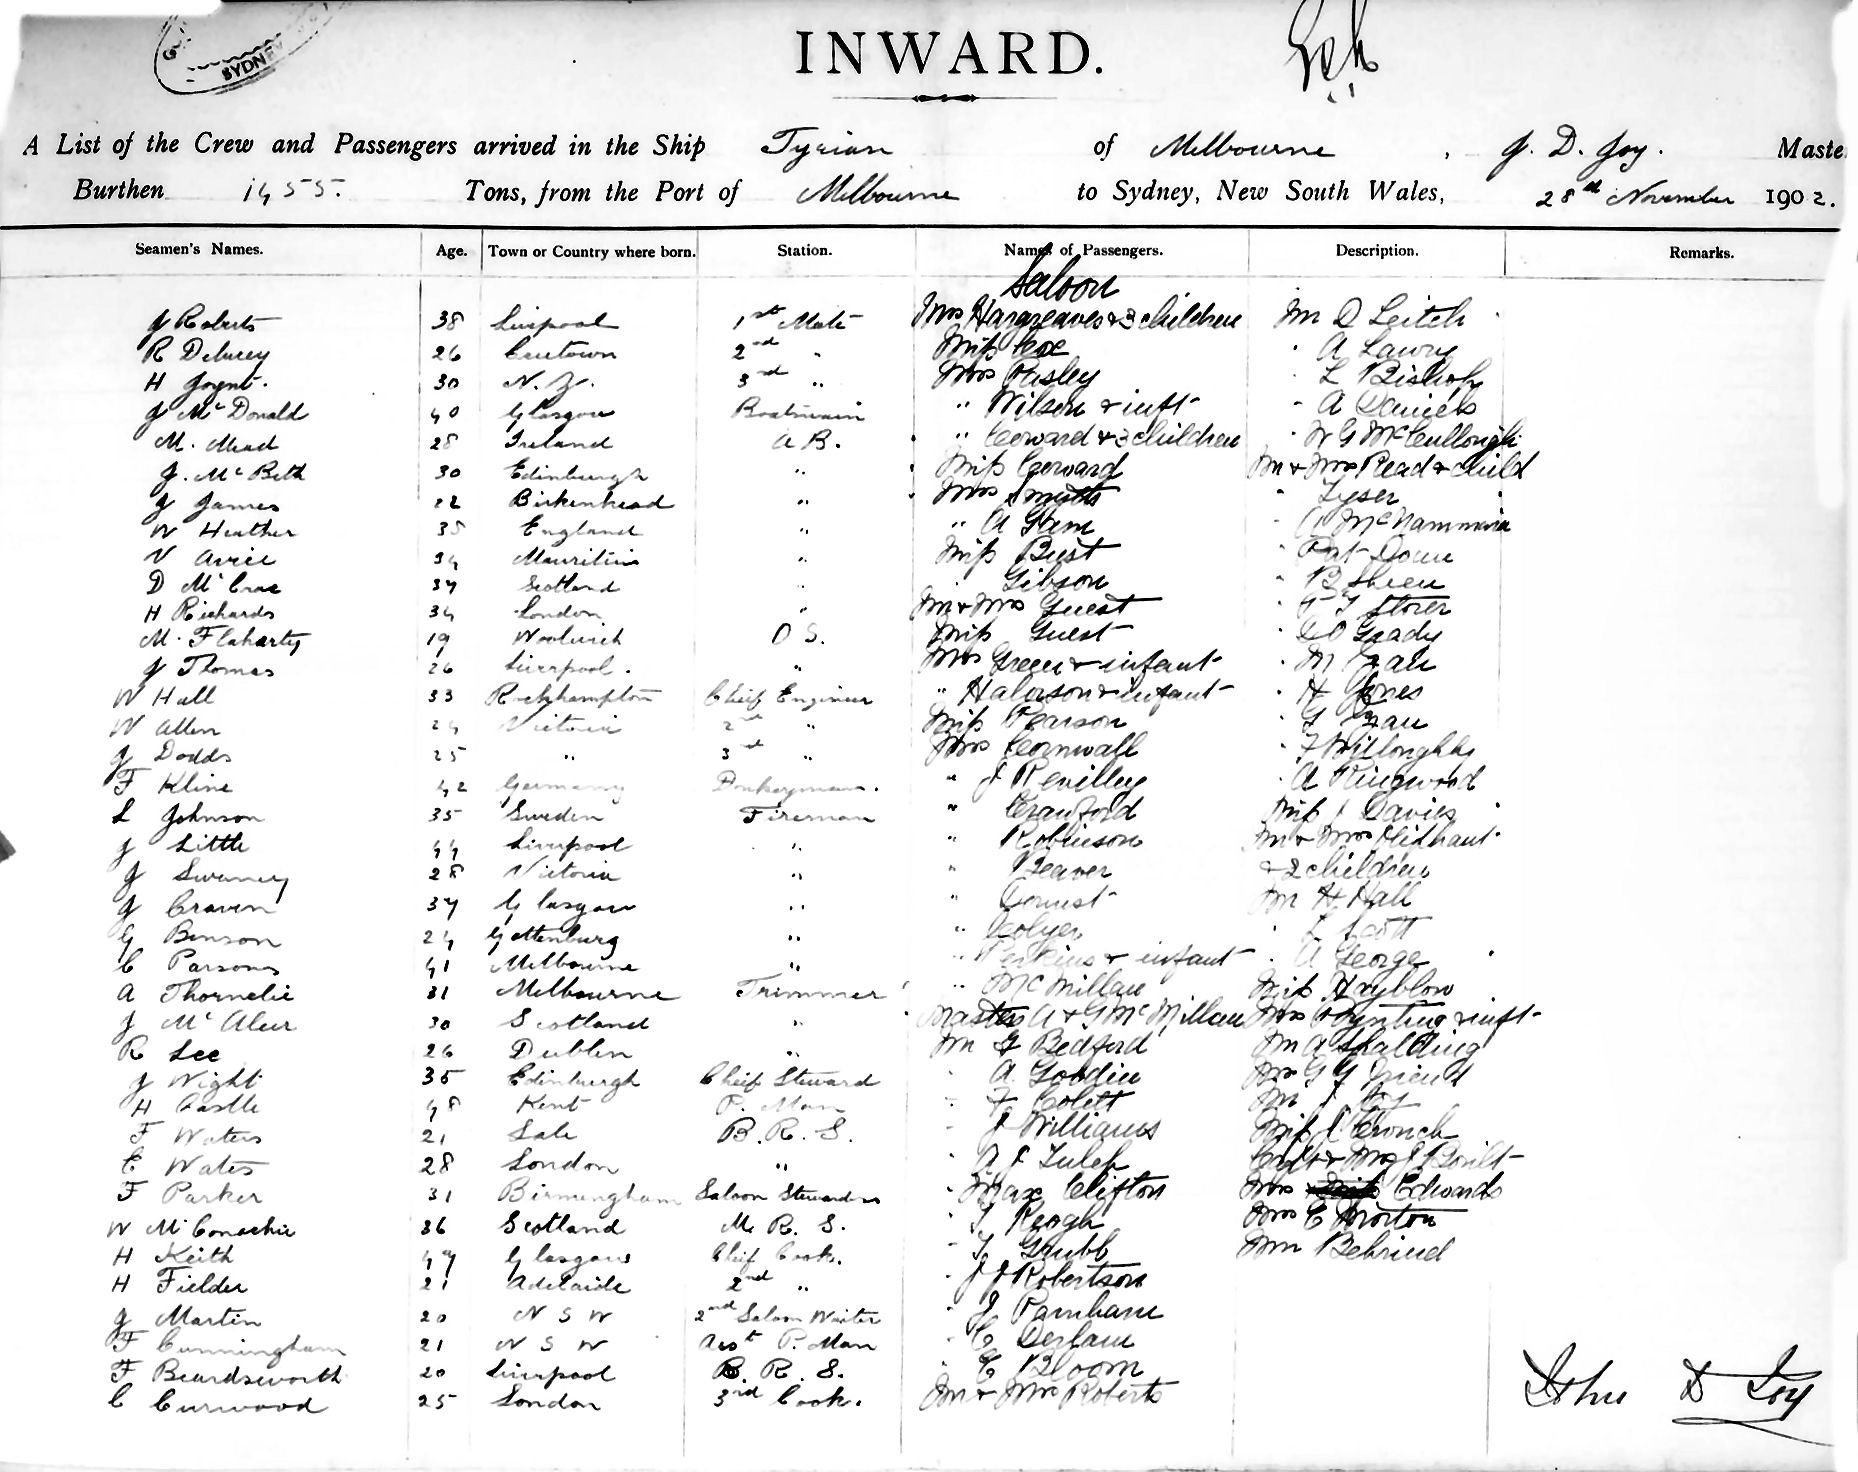 SYDNEY
INWARD.
A List of the Crew and Passengers arrived in the Ship Tyrian of Melbourne, J. D. Joy. Maste
Burthen 1455. Tons, from the Port of Melbourne to Sydney, New South Wales, 28th November 1902.
Seamen's Names. Age. Town or Country where born. Station. Names of Passengers. Description. Remarks.
Saloon
J Roberts 38 Liverpool 1st Mate Mrs Hargreaves & 3 children Mr D Leitch
R Delucey 26 2nd " Miss Cox " A Lawry
H Joynt. 30 N. Z. 3rd " Mrs Pasley " L Bishop
J McDonald 40 Glasgow Boatswain " Wilson & inft " A Daniels
M. Mead 28 Ireland A B. " Coward & 3 children " W G McCullough
J. McBeth 30 Edinburgh " Miss Coward Mr & Mrs Read & child
J James 22 Birkenhead " Mrs Smyth " Tyser
W Heather 35 England " " A Ham " McNammara
V Avice 34 Mauritius " Miss Bust " Pat
D McCrae 37 Scotland " " Gibson " B Sheen
H Richards 34 London " Mr & Mrs Guest " Storer
M. Flaharty 19 Woolwich O S. Miss Guest " O'Grady
J Thomas 26 Liverpool. " Mrs Green & infant " M
W Hall 33 Rockhampton Cheif Engineer " Halorson & infant " H Jones
W Allen 24 Victoria 2nd " Miss Pearson "
J Dodds 25 " 3rd " Mrs Cornwall " F Willoughby
F Kline 42 Germany Donkeyman. " J Revilley " A Ringwood
L Johnson 35 Sweden Fireman " Crawford Miss J Davies
J Little 44 Liverpool " " Robinson Mr & Mrs Oliphant
J Swaney 28 Victoria " " Beaver & 2 children
J Craven 37 Glasgow " " Mr H Hall
G Benson 24 Gottenburg " " Colyer " L Scott
C Parsons 41 Melbourne " " Perkins & infant " A George
A Thornelie 31 Melbourne Trimmer " McMillan Miss Hayblow
J McAleer 30 Scotland " Masters A & G McMillan Mrs Poynting & inft
R Lee 26 Dublin " Mr G Bedford Mr A Spalding
J Wight 35 Edinburgh Cheif Steward " A Goodie Mr G Y Friend
H Castle 48 Kent P. Man " F Colett Mr J
F Waters 21 Sale B. R. S. " J Williams Miss J Crouch
E Wates 28 London " " A J Tulch Capt & Mrs
F Parker 31 Birmingham Saloon Stewardess " Max Clifton Mrs Edwards
W McConachie 36 Scotland M. R. S. " T Keogh Mrs C Morton
H Keith 47 Glasgow Cheif Cook. " T. Grubb Mr Behrind
H Fielder 21 Adelaide 2nd " " J J Robertson
J Martin 20 N S W 2nd Saloon Waiter " J Parnham
F Cunningham 21 N S W Asst P. Man " C Derham
F Beardsworth 20 Liverpool B. R. S. " C Bloom
C Curwood 25 London 3rd Cook. Mr & Mrs Roberts
John D Joy